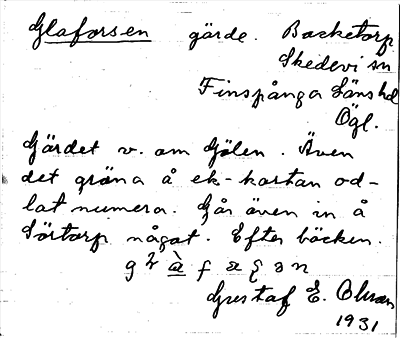 Glaforsen gärde. Backetorp
Skedevi sn
Finspånga Läns hd
Ögl.
Gärdet v. om Gölen. Även
det gröna å ek-kartan od-
lat numera. Går även in å
Sörtorp något. Efter bäcken.
Gustaf E. Olsson
1931